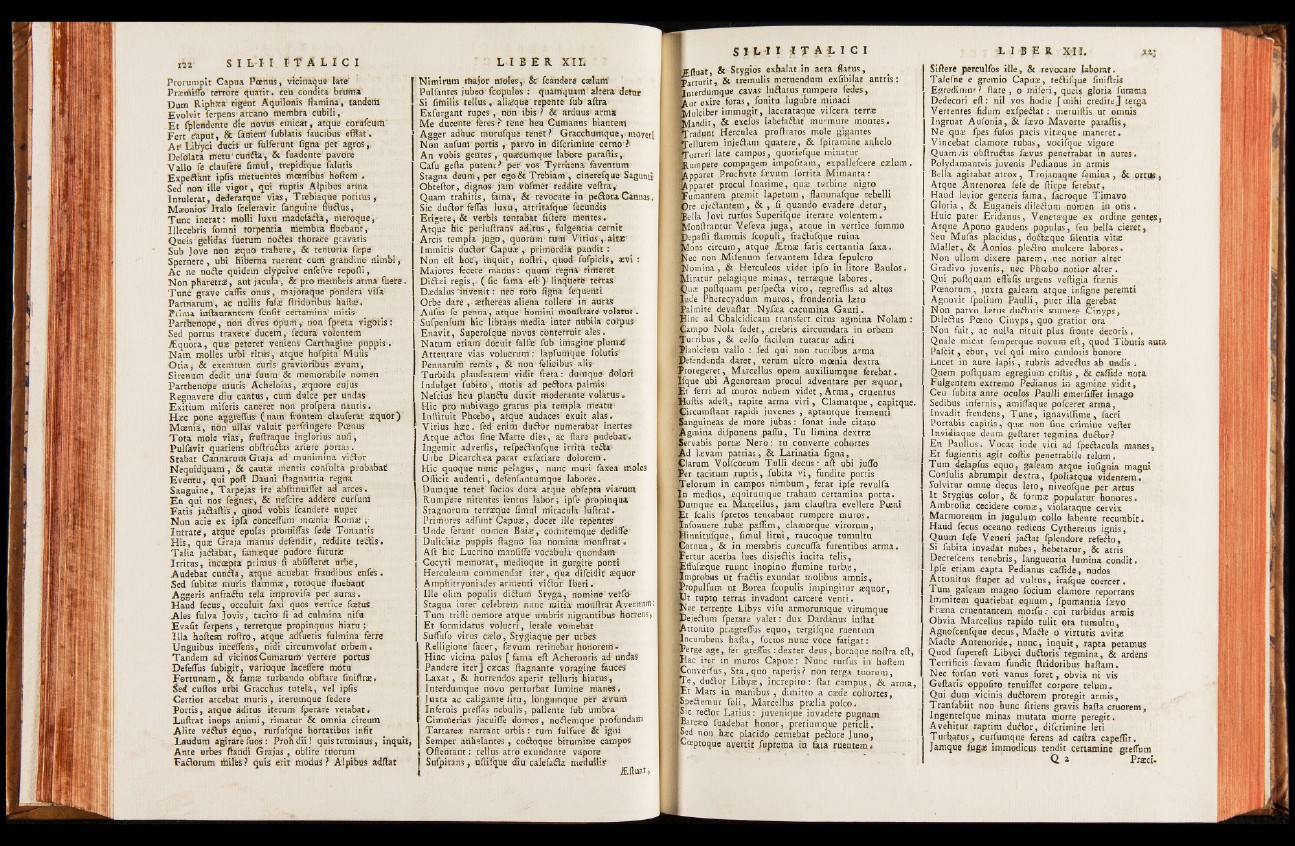 122 SILII ITALICI
Prorumpit Capua Pœnus, vicinaque late
Præmisso terrore quatit. ceu condita bruma
Dum Riphæa rigent Aquilonis flamina, tandem
Evolvit serpens arcano membra cubili,
Et splendente die novus emicat, atque coruscum
Fert caput, & saniem sublatis faucibus efflat.
At Libyci ducis ut fulserunt signa per agros,
Desolata metu cuncta, & suadente pavore
Vallo se clausere simul, trepidique salutis
Expectant ipsis metuentes mœnibus hostem.
Sed non ille vigor, qui ruptis Alpibus arma
Intulerat, dederatque vias, Trebiaque potitus,
Mæonios Italo sceleravit sanguine fluctus,
Tunc inerat: molli luxu madefacta, meroque,
Illecebris somni torpentia membra fluebant,
Queis gelidas suetum noctes thorace gravatis
Sub Jove non æquo trahere, & tentoria sepe
Spernere, ubi hiberna ruerent cum grandine nimbi,
Ac ne nocte quidem clypeive ensesve reposti,
Non pharetræ, aut jacula, & pro membris arma fuere.
Tunc grave cassis onus, majoraque pondera visa
Parmarum, ac nullis fusæ stridoribus hastæ.
Prima instaurantem sensit certamina mitis
Parthenope, non dives opum, non spreta vigoris:
Sed portus traxere ducem, secura volentem
Æquora, quæ peteret veniens Carthagine puppis.
Nam molles urbi ritus, atque hospita Musis
Otia, & exemtum curis gravioribus ævum,
Sirenum dedit una suum & memorabile nomen
Parthenope muris Acheloias, æquore cujus
Regnavere diu cantus, cum dulce per undas
Exitium miseris caneret non prospera nautis.
Hæc pone aggressus (nam frontem clauserat æquor)
Mœnia, non ullas valuit perfringere Pœnus
Tota mole vias, frustraque inglorius ausi,
Pulsavit quatiens obstructas ariete portas.
Stabat Cannarum Graja ad munimina victor
Nequidquam, & cautæ mentis consulta probabat
Eventu, qui post Dauni stagnantia regna
Sanguine, Tarpejas ire abstinuisset ad arces.
En qui nos segnes, & nescire addere cursum
Fatis jactastis, quod vobis scandere nuper
Non acie ex ipsa concessum mœnia Romæ;
Intrate, atque epulas promissas sede Tonantis
His, quæ Graja manus defendit, reddite tectis.
Talia jactabat, famæque pudore futuræ
Irritus, incœpta primus si absisteret urbe,
Audebat cuncta, atque acuebat fraudibus enses.
Sed subitæ muris flammæ, totoque fluebant
Aggeris anfractu tela improvisa per auras.
Haud secus, occuluit saxi quos vertice fœtus
Ales fulva Jovis, tacito si ad culmina nisu
Evasit serpens, terretque propinquus hiatu;
Illa hostem rostro, atque adsuetis fulmina ferre
Unguibus incessens, nidi circumvolat orbem.
Tandem ad vicinos Cumarum vertere portus
Defessus subigit, varioque lacessere motu
Fortunam, & famæ turbando obstare sinistræ.
Sed custos urbi Gracchus tutela, vel ipsis
Certior arcebat muris, iterumque sedere
Portis, atque aditus iterum sperare vetabat.
Lustrat inops animi, rimatur & omnia circum
Alite vectus equo, rursusque hortatibus infit
Laudum agitare suos: Proh dii! quis terminus, inquit,
Ante urbes standi Grajas, oblite tuorum
Factorum miles? quis erit modus? Alpibus adstat
LIBER XII.
Nimirum major moles, & scandere cælum
Pulsantes jubeo scopulos: quamquam altera detur
Si similis tellus, aliæque repente sub astra
Exsurgant rupes, non ibis? & arduus arma
Me ducente feres? tene heu Cumanus hiantem
Agger adhuc murusque tenet? Gracchumque, moveri
Non ausum portis, parvo in discrimine cerno?
An vobis gentes, quæcumque labore parastis,
Casu gesta patent? per vos Tyrrhena faventum
Stagna deum, per ego & Trebiam, cineresque Sagunti
Obtestor, dignos jam vosmet reddite vestra,
Quam trahitis, fama, & revocate in pectora Cannas.
Sic ductor fessas luxu, attritasque secundis
Erigere, & verbis tentabat sistere mentes.
Atque hic perlustrans aditus, fulgentia cernit
Arcis templa jugo, quorum tum Virius, altæ
Immitis ductor Capuæ, primordia pandit:
Non est hoc, inquit, nostri, quod suspicis, ævi:
Majores fecere manus: quum regna timeret
Dictæi regis, (sic fama est) linquere terras
Dædalus invenit: nec toto signa sequenti
Orbe dare, æthereas aliena tollere in auras
Ausus se penna, atque homini monstrare volatus.
Suspensum hic librans media inter nubila corpus
Enavit, Superosque novus conterruit ales.
Natum etiam docuit falsæ sub imagine plumæ
Attentare vias volucrum: lapsumque solutis
Pennarum remis, & non felicibus alis
Turbida plaudentem vidit freta: dumque dolori
Indulget subito, motis ad pectora palmis
Nescius heu planctu duxit moderante volatus.
Hic pro nubivago gratus pia templa meatu
Instituit Phœbo, atque audaces exuit alas.
Virius hæc. sed enim ductor numerabat inertes
Atque actos sine Marte dies, ac stare pudebat.
Ingemit adversis, respectusque irrita tecta
Urbe Dicarchea parat exsatiare dolorem.
Hic quoque nunc pelagus, nunc muri saxea moles
Officit audenti, defensantumque labores.
Dumque tenet socios dura atque obsepta viarum
Rumpere nitentes lentus labor; ipse propinqua
Stagnorum terræque simul miracula lustrat.
Primores adsunt Capuæ, docet ille repentes
Unde ferant nomen Baiæ, comitemque dedisse
Dulichiæ puppis stagno sua nomina monstrat.
Ast hic Lucrino mansisse vocabula quondam
Cocyti memorat, medioque in gurgite ponti
Herculeum commendat iter, qua discidit æquor
Amphitryoniades armenti victor Iberi.
Ille olim populis dictum Styga, nomine verso
Stagna inter celebrem nunc mitia monstrat Avernum:
Tum tristi nemore atque umbris nigrantibus horrens,
Et formidatus volucri, lerale vomebat
Suffuso virus cælo, Stygiaque per urbes
Relligione sacer, sævum retinebat honorem.
Hinc vicina palus [fama est Acherontis ad undas
Pandere iter] cæcas stagnante voragine fauces
Laxat, & horrendos aperit telluris hiatus,
Interdumque novo perturbat lumine manes.
Juxta ac caligante situ, longumque per ævum
Infernis pressas nebulis, pallente sub umbra
Cimmerias jacuisse domos, noctemque profundam
Tartareæ narrant urbis: tum sulfure & igni
Semper anhelantes, coctoque bitumine campos
Ostentant: tellus atro exundante vapore
Suspirans, ustisque diu calefacta medullis
Æstuat,
SILII ITALICI
Æstuat, & Stygios exhalat in aera flatus,
Parturit, & tremulis metuendum exsibilat antris:
Interdumque cavas luctatus rumpere sedes,
Aut exire foras, sonitu lugubre minaci
Mulciber immugit, lacerataque viscera terræ
Mandit, & excelsos labefactat murmure montes.
Tradunt Herculea prostratos mole gigantes
Tellurem injectam quatere, & spiramine anhelo
Torreri late campos, quotiesque minatur
Rumpere compagem impositam, expallescere cælum.
Apparet Prochyte sævum sortita Mimanta:
Apparet procul Inarime, quæ turbine nigro
Fumantem premit Iapetum, flammasque rebelli
Ore ejectantem, &, si quando evadere detur,
Bella Jovi rursus Superisque iterare volentem.
Monstrantur Veseva juga, atque in vertice summo
Depasti flammis scopuli, fractusque ruina
Mons circum, atque Ætnæ fatis certantia saxa.
Nec non Misenum servantem Idæa sepulcro
Nomina, & Herculeos videt ipso in litore Baulos.
Miratur pelagique minas, terræque labores.
Quæ postquam perspecta viro, regressus ad altos
Inde Pherecyadum muros, frondentia læto
Palmite devastat Nysæa cacumina Gauri.
Hinc ad Chalcidicam transfert citus agmina Nolam:
Campo Nola sedet, crebris circumdata in orbem
Turribus, & celso facilem tutatur adiri
Planiciem vallo: sed qui non turribus arma
Defendenda daret, verum ultro mœnia dextra
Protegeret, Marcellus opem auxiliumque ferebat.
Isque ubi Agenoream procul adventare per æquor,
Et ferri ad muros nubem videt, Arma, cruentus
Hostis adest, rapite arma viri, Clamatque, capitque.
Circumstant rapidi juvenes, aptantque frementi
Sanguineas de more jubas: sonat inde citato
Agmina disponens passu, Tu limina dextræ
Servabis portæ Nero: tu converte cohortes
Ad lævam patrias, & Larinatia signa,
Clarum Volscorum Tulli decus: ast ubi jusso
Per tacitum ruptis, subita vi, fundite portis
Telorum in campos nimbum, ferar ipse revulsa
In medios, equitumque traham certamina porta.
Dumque ea Marcellus, jam claustra evellere Pœni
Et scalis spretos tentabant rumpere muros.
Insonuere tubæ passim, clamorque virorum,
Hinnitusque, simul litui, raucoque tumultu
Cornua, & in membris concussa furentibus arma.
Fertur acerba lues disjectis incita telis,
Effusæque ruunt inopino flumine turbæ,
Improbus ut fractis exundat molibus amnis,
Propulsum ut Borea scopulis impingitur æquor,
Ut rupto terras invadunt carcere venti.
Nec terrente Libys visu armorumque virumque
Dejectum sperare valet: dux Dardanus instat
Attonito prægressus equo, tergisque ruentum
Incumbens hasta, socios nunc voce fatigat:
Perge age, fer gressus: dexter deus, horaque nostra est,
Hac iter in muros Capuæ: Nunc rursus in hostem
Conversus, Sta, quo raperis? non terga tuorum,
Te, ductor Libyæ, increpito: stat campus, & arma,
Et Mars in manibus, dimitto a cæde cohortes,
Spectemur soli, Marcellus prælia posco.
Sic rector Latius: juvenique invadere pugnam
Barcæo suadebat honor, pretiumque pericli.
Sed non hæc placido cernebat pectore Juno,
Cœptoque avertit suprema in fata ruentem.
LIBER XII. 123
Sistere perculsos ille, & revocare laborat.
Talesne e gremio Capuæ, tectisque sinistris
Egredimur? state, o miseri, queis gloria summa
Dedecori est: nil vos hodie [mihi credite] terga
Vertentes fidum exspectat: meruistis ut omnis
Ingruat Ausonia, & sævo Mavorte parastis,
Ne quæ spes fusos pacis vitæque maneret.
Vincebat clamore tubas, vocisque vigore
Quamvis obstructas sævus penetrabat in aures.
Polydamanteis juvenis Pedianus in armis
Bella agitabat atrox, Trojanaque semina, & ortus,
Atque Antenorea sese de stirpe ferebat,
Haud levior generis fama, sacroque Timavo
Gloria, & Euganeis dilectum nomen in otis.
Huic pater Eridanus, Venetæque ex ordine gentes,
Atque Apono gaudens populus, seu bella cieret,
Seu Musas placidus, doctæque silentia vitæ
Mallet, & Aonios plectro mulcere labores.
Non ullum dixere parem, nec notior alter
Gradivo juvenis, nec Phœbo notior alter.
Qui postquam effusis urgens vestigia frænis
Pœnorum, juxta galeam atque insigne peremti
Agnovit spolium Paulli, puer illa gerebat
Non parvo lætus ductoris munere Cinyps,
Dilectus Pœno Cinyps, quo gratior ora
Non fuit, ac nulla nituit plus fronte decoris.
Quale micat semperque novum est, quod Tiburis aura
Pascit, ebur, vel qui mito candoris honore
Lucet in aure lapis, rubris advectus ab undis.
Quem postquam egregium cristis, & casside nota
Fulgentem extremo Pedianus in agmine vidit,
Ceu subita ante oculos Paulli emersisset imago
Sedibus infernis, amissaque posceret arma,
Invadit frendens, Tune, ignavissime, sacri
Portabis capitis, quæ non sine crimine vester
Invidiaque deum gestaret tegmina ductor?
En Paullos. Vocat inde viri ad spectacula manes,
Et fugientis agit costis penetrabile telum.
Tum delapsus equo, galeam atque insignia magni
Consulis abrumpit dextra, spoliatque videntem.
Solvitur omne decus leto, niveosque per artus
It Stygius color, & formæ populatur honores.
Ambrosiæ cecidere comæ, violataque cervix
Marmoreum in jugulum collo labente recumbit.
Haud secus oceano rediens Cythereius ignis,
Quum sese Veneri jactat splendore refecto,
Si subita invadat nubes, hebetatur, & atris
Decrescens tenebris, languentia lumina condit.
Ipse etiam capta Pedianus casside, nudos
Attonitus stupet ad vultus, irasque coercet.
Tum galeam magno socium clamore reportans
Immitem quatiebat equum, spumantia sævo
Fræna cruentantem morsu: cui turbidus armis
Obvia Marcellus rapido tulit ora tumultu,
Agnoscensque decus, Macte o virtutis avitæ
Macte Antenoride, nunc, inquit, rapta petamus
Quod supereft Libyci ductoris tegmina, & ardens
Terrificis sævam fundit stridoribus hastam.
Nec forsan voti vanus foret, obvia ni vis
Gestaris opposito tenuisset corpore telum.
Qui dum vicinis ductorem protegit armis,
Transabiit non hunc sitiens gravis hasta cruorem,
Ingentesque minas mutata morte peregit.
Avehitur raptim ductor, discrimine leti
Turbatus, cursumque ferens ad castra capessit.
Jamque fugæ immodicus tendit certamine gressum
Q 2 Præci-